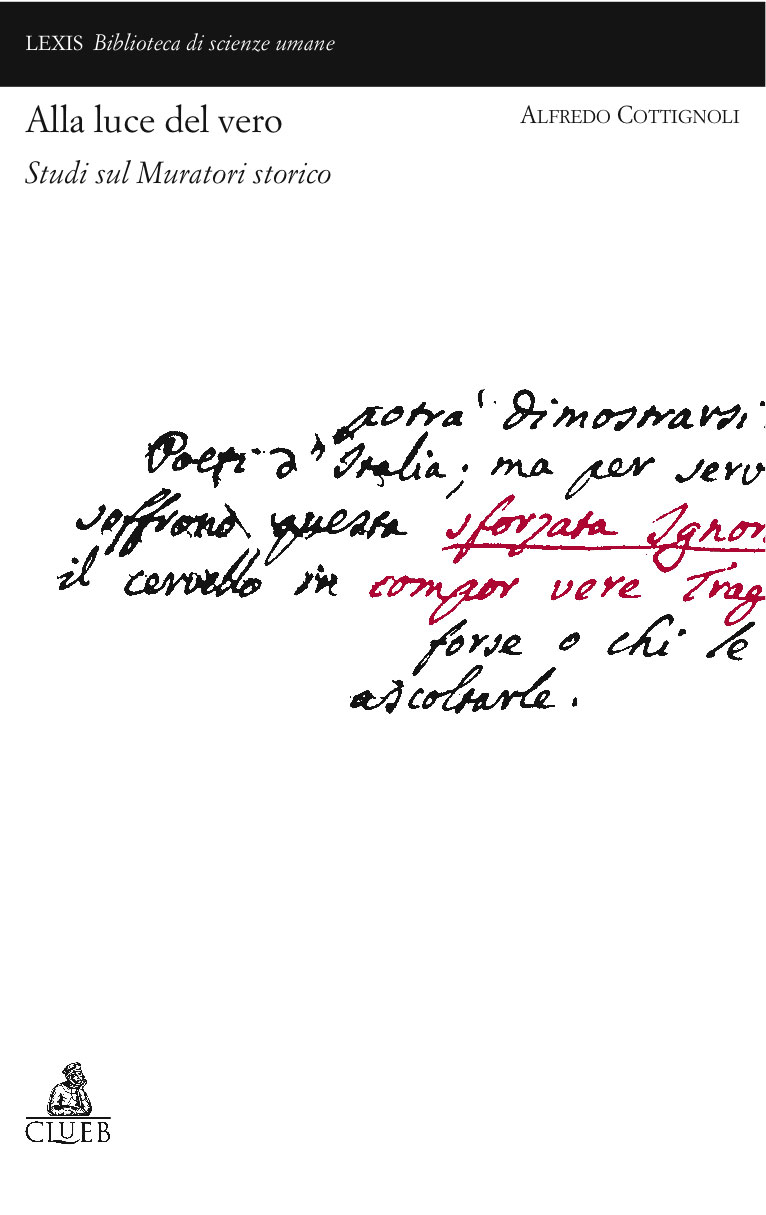 LEXIS Biblioteca di scienze umane
Alla luce del vero
ALFREDO COTTIGNOLI
Studi sul Muratori storico
potra' dimostrarsi
Poeti d'Italia; ma per serv
soffrono questa sforzata Ignor
il cervello in compor vere Trag
forse o chi le
ascoltarle.
CLUEB